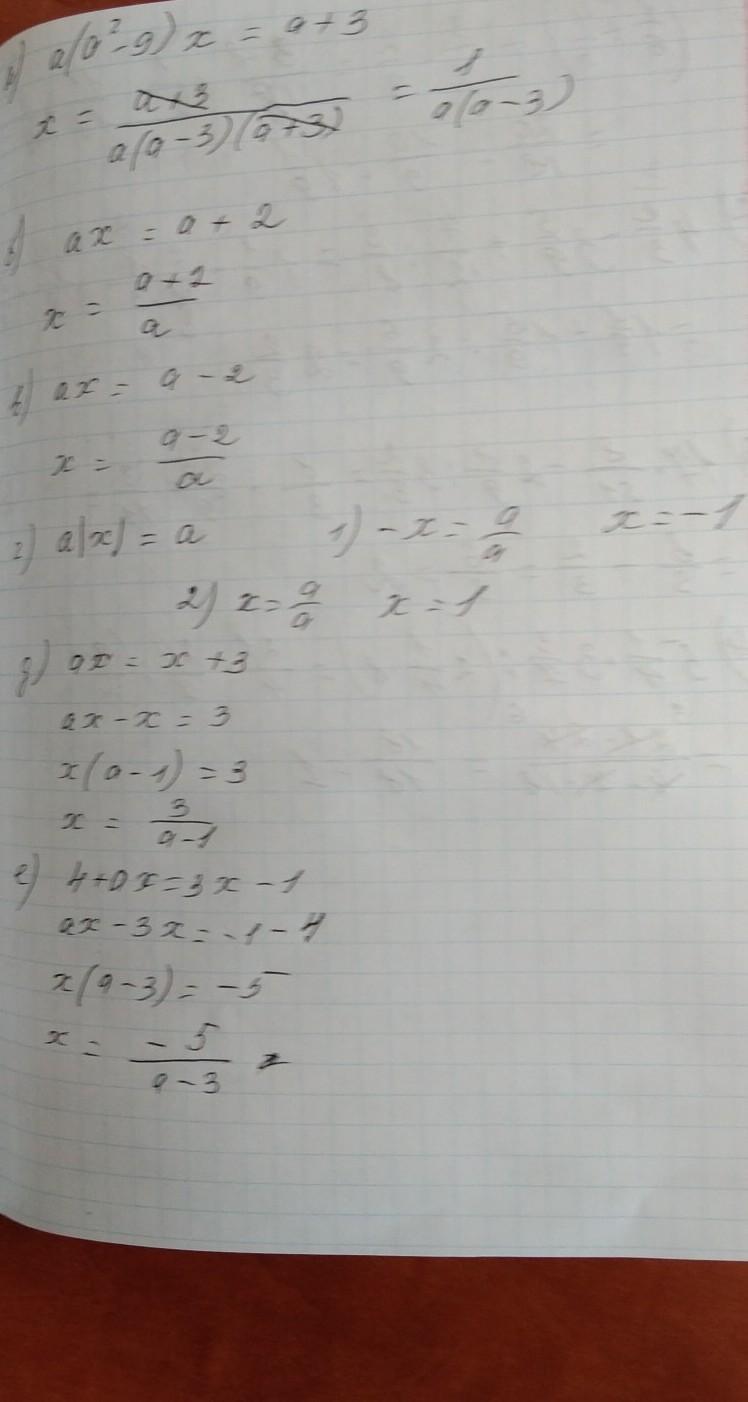 в) a(a²-9)x = a+3
x = a+3 / a(a-3)(a+3) = 1 / a(a-3)
ax = a + 2
x = a+2 / a
в) ax = a - 2
x = a-2 / a
г) a|x| = a 1) -x = a/a x = -1
2) x = a/a x = 1
д) ax = x + 3
ax - x = 3
x(a-1) = 3
x = 3 / a-1
е) 4+ax=3x-1
ax-3x=-1-4
x(a-3) = -5
x = -5 / a-3